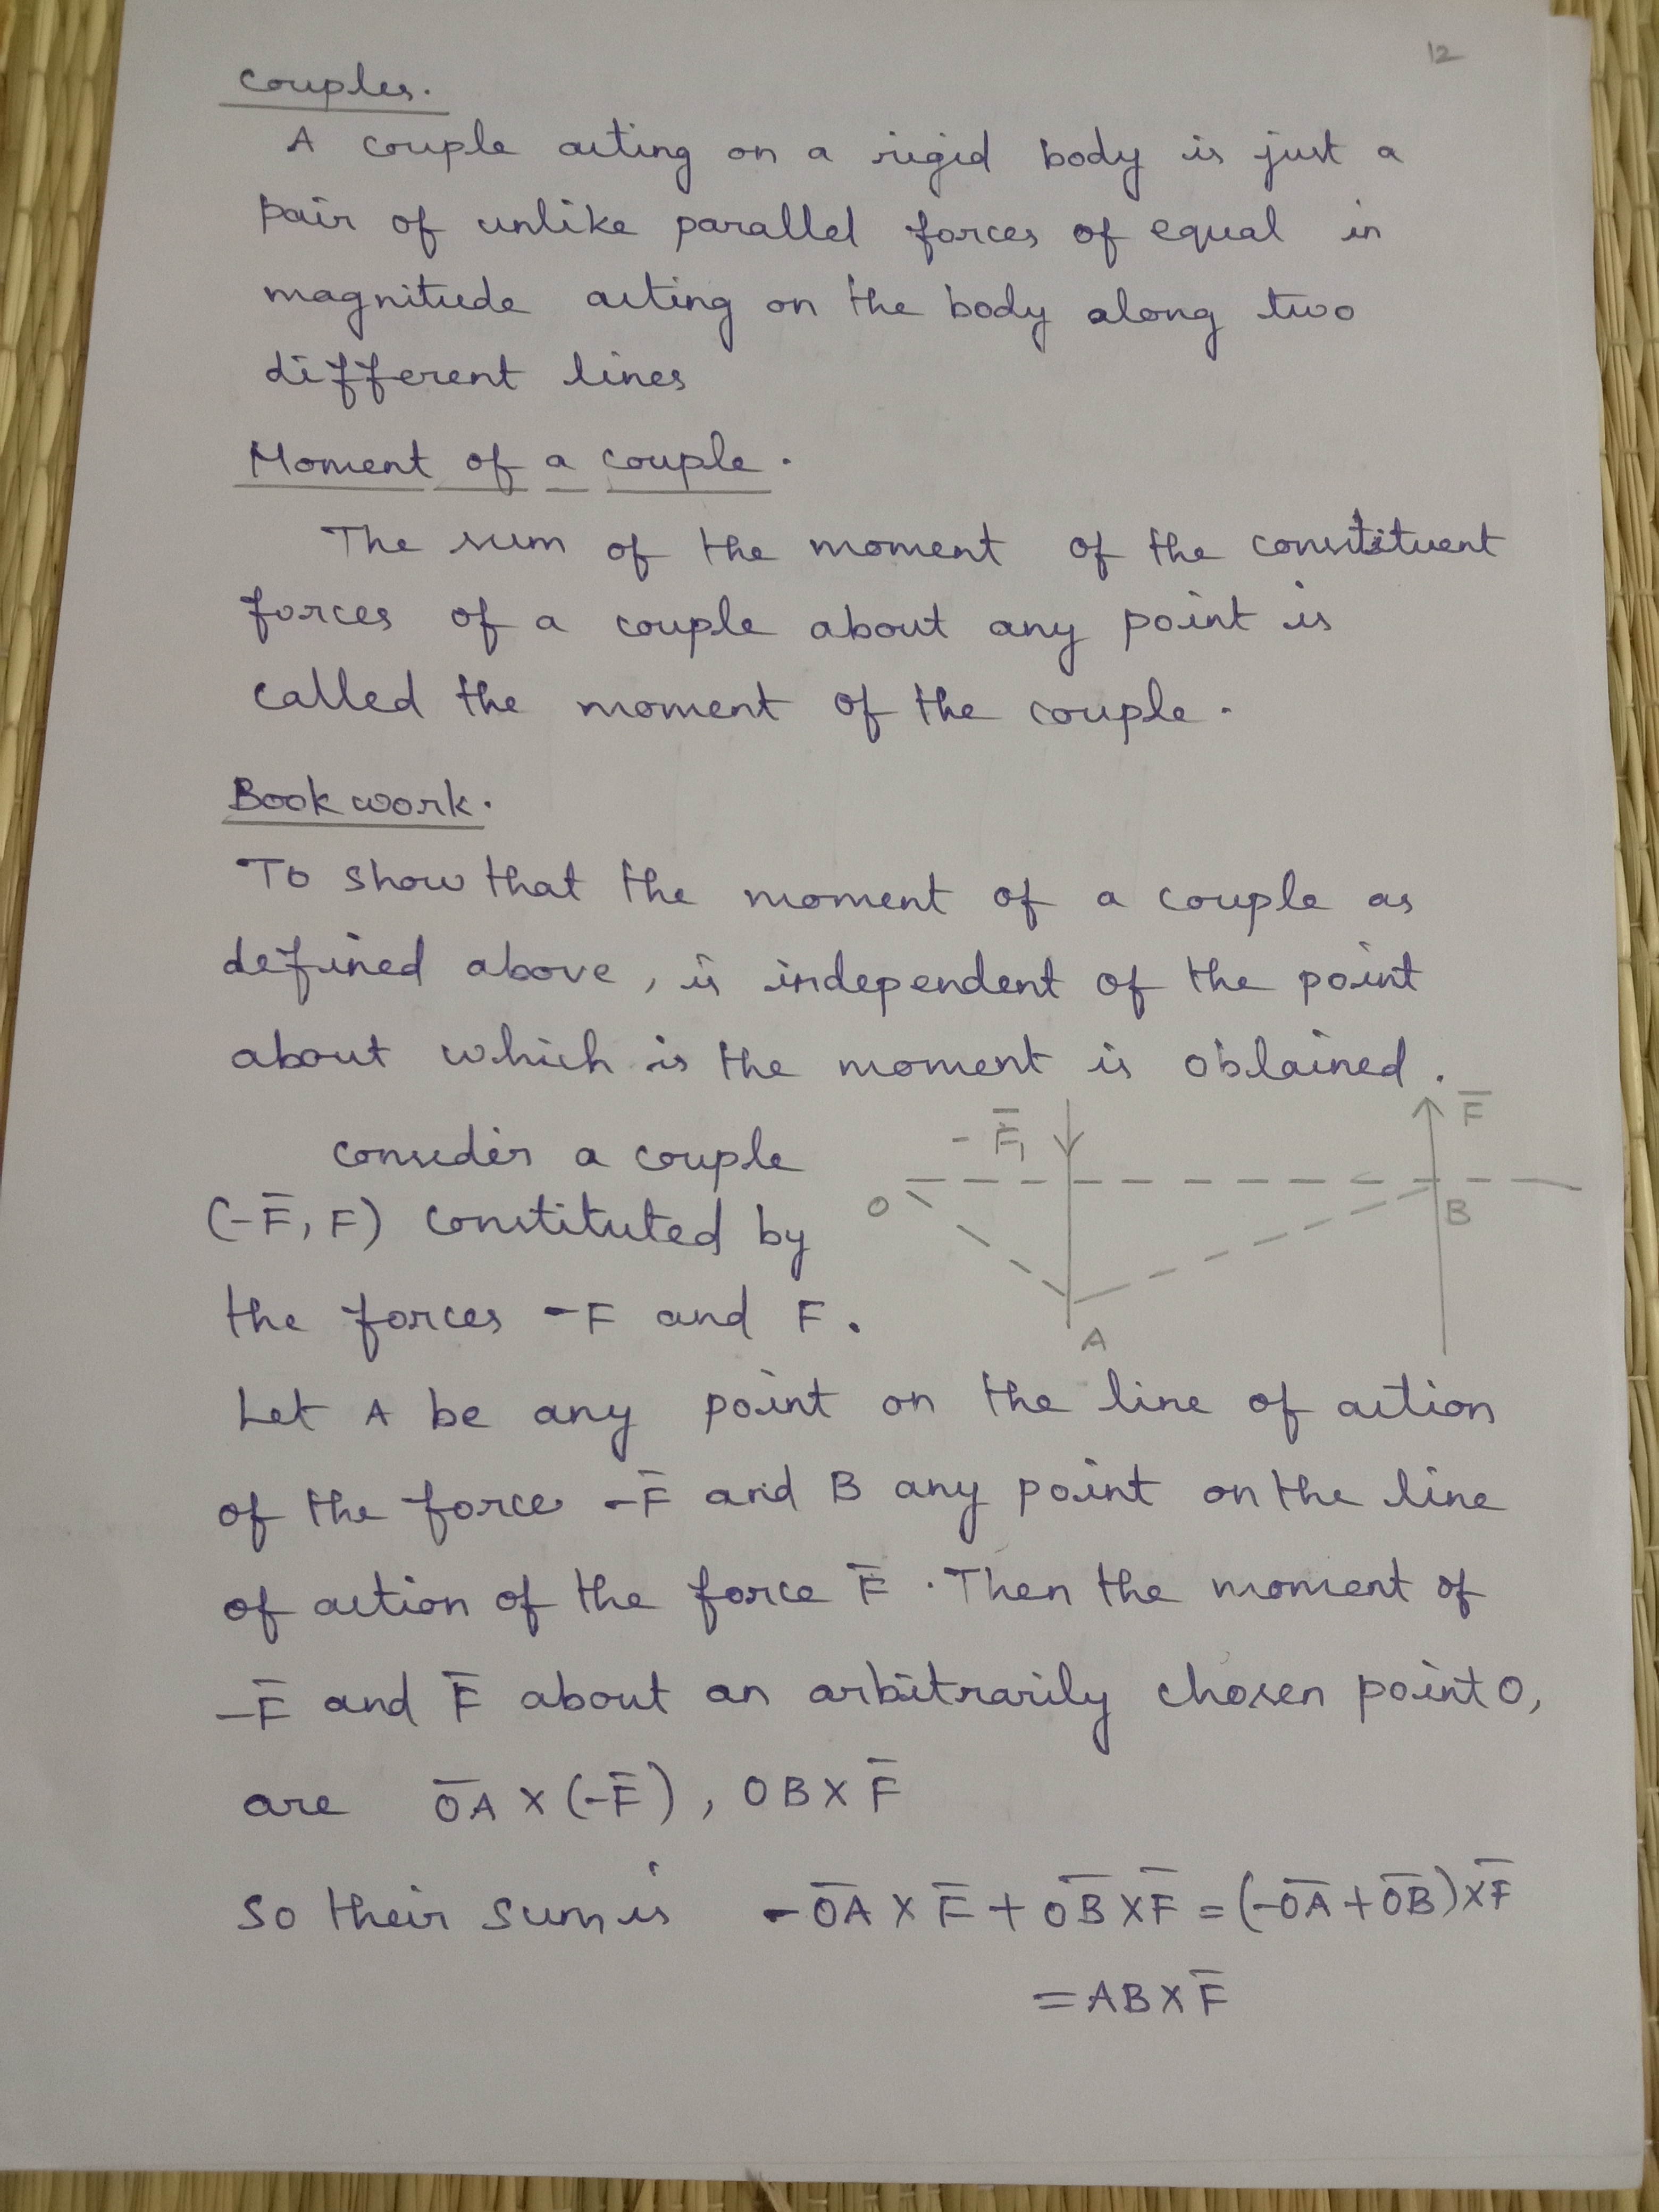 12
Couples.
A couple acting on a rigid body is just a
pair of unlike parallel forces of equal in
magnitude acting on the body along two
different lines
Moment of a couple.
The sum of the moment of the constituent
forces of a couple about any point is
called the moment of the couple.
Book work.
To show that the moment of a couple as
defined above, is independent of the point
about which is the moment is oblained.
-F̅₁
F̅
O
B
A
Consider a couple
(-F̅, F) constituted by
the forces -F and F.
Let A be any point on the line of action
of the force -F̅ and B any point on the line
of action of the force F̅. Then the moment of
-F̅ and F̅ about an arbitrarily chosen point O,
are O̅A̅ × (-F̅), OB × F̅
So their sum is -O̅A̅ × F̅ + O̅B̅ × F̅ = (-O̅A̅ + O̅B̅) × F̅
= AB × F̅